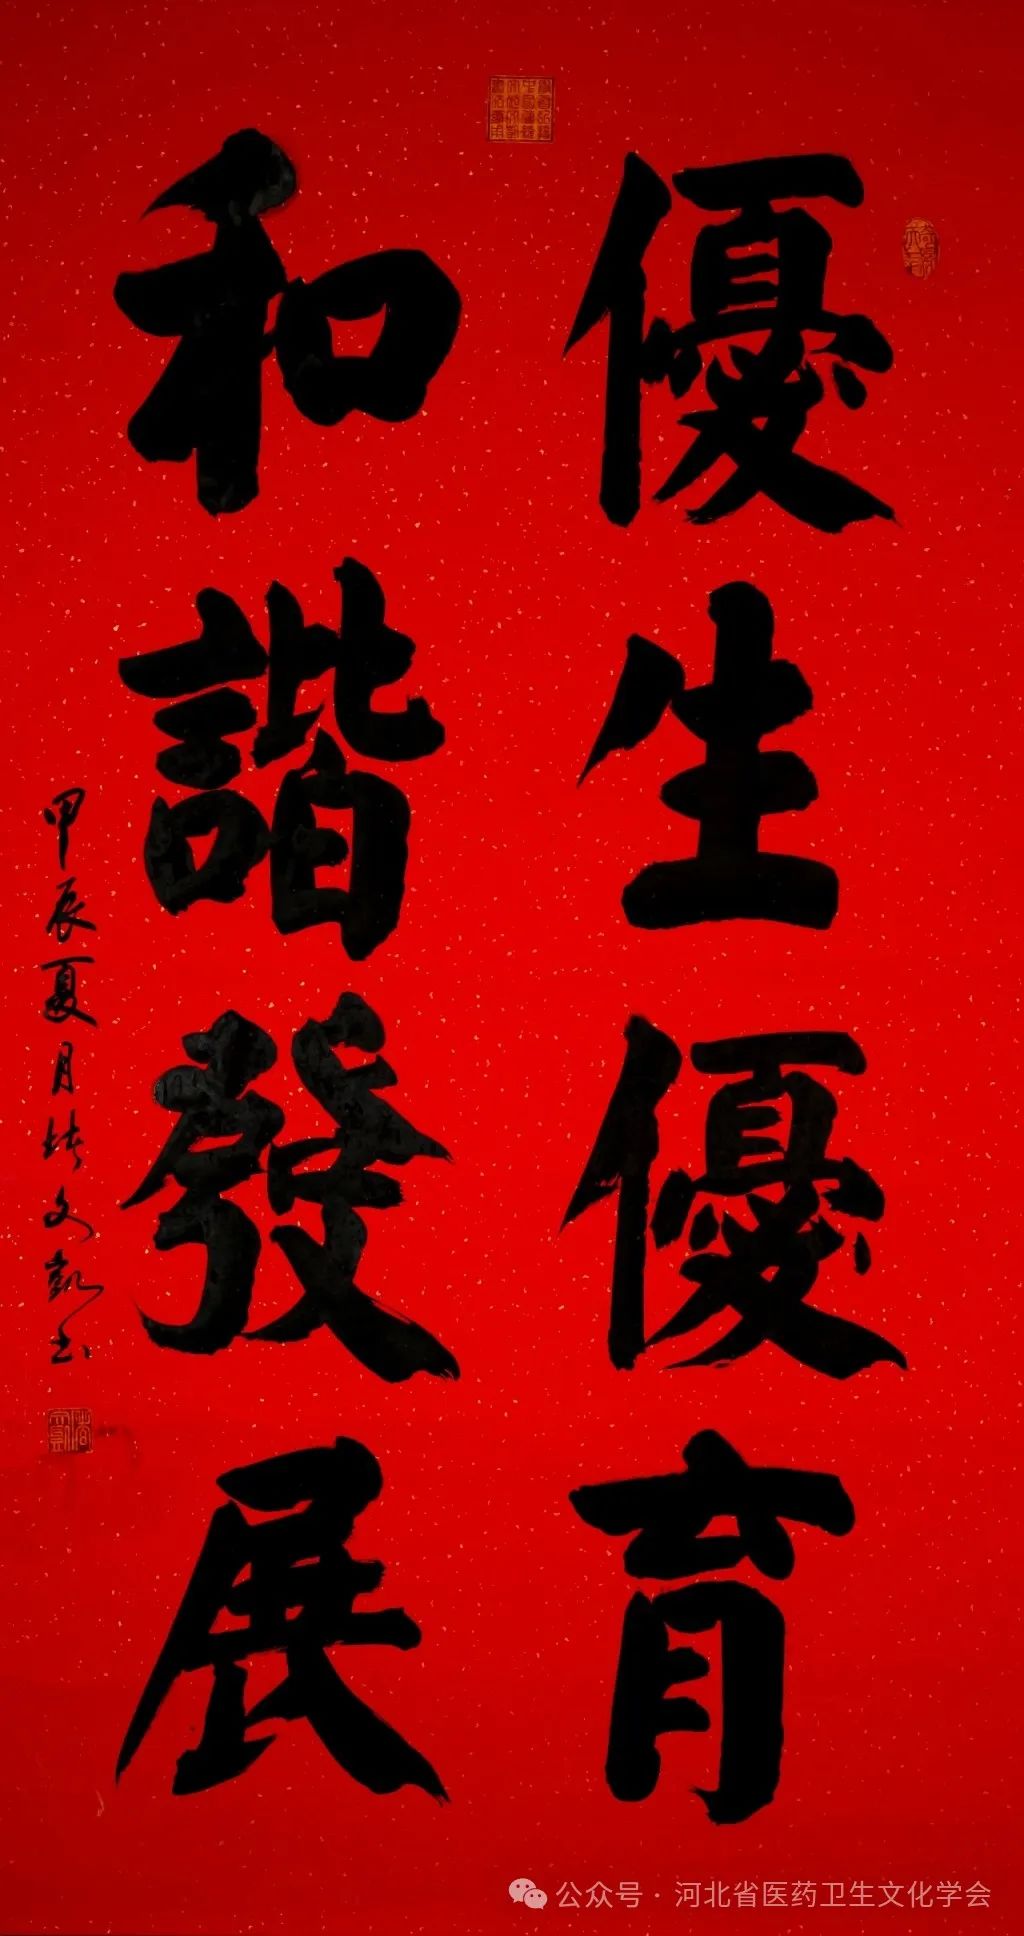 優生優育
和諧發展
甲辰夏月 文凱书
公众号 · 河北省医药卫生文化学会